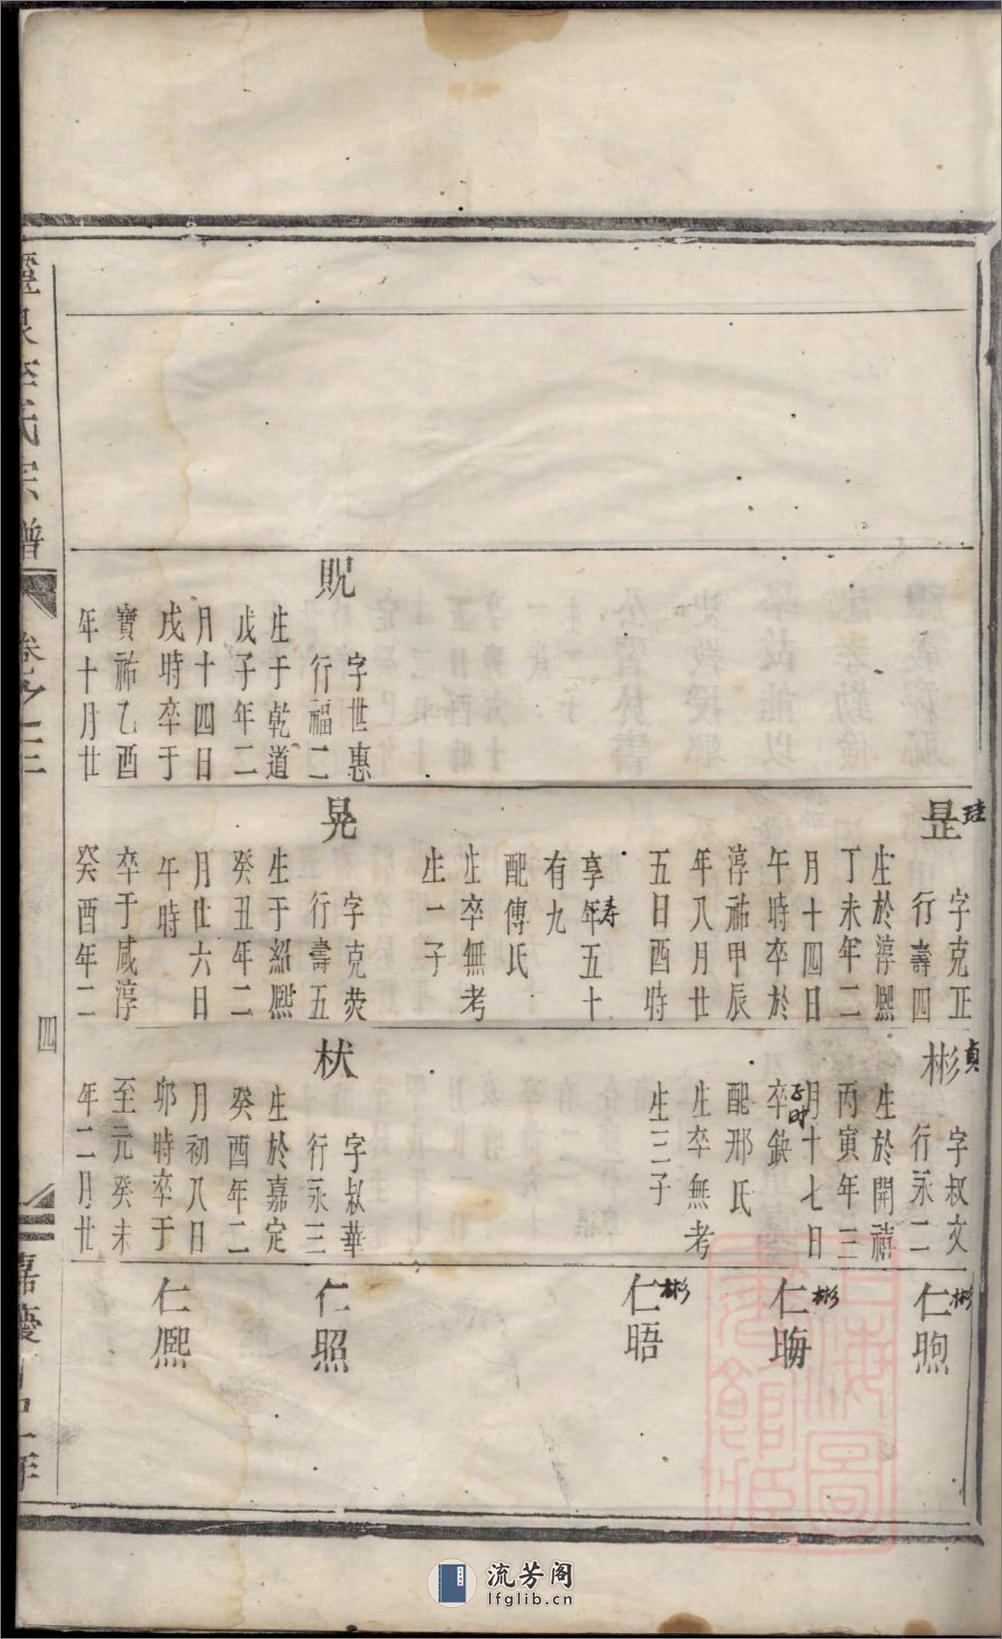 貺
字世惠
行福二
生于乾道
戊子年二
月十四日
戌時卒于
寶祐乙酉
年十月廿
昰
珪
字克正
行壽四
生於淳熙
丁未年二
月十四日
午時卒於
淳祐甲辰
年八月廿
五日酉時
享年五十
寿
有九
配傅氏
生卒無考
生一子
晃
字克荧
行壽五
生于紹熙
癸丑年二
月廿六日
午時
卒于咸淳
癸酉年二
彬
貞
字叔文
行永二
生於開禧
丙寅年三
月十七日
卒缺
配邢氏
生卒無考
生三子
栻
字叔華
行永三
生於嘉定
癸酉年二
月初八日
卯時卒于
至元癸未
年二月廿
仁煦
彬
仁晦
彬
仁晤
彬
仁照
仁熈
氏宗譜
卷之三
四
嘉慶
年
上海圖書館藏
流芳阁
lfglib.cn